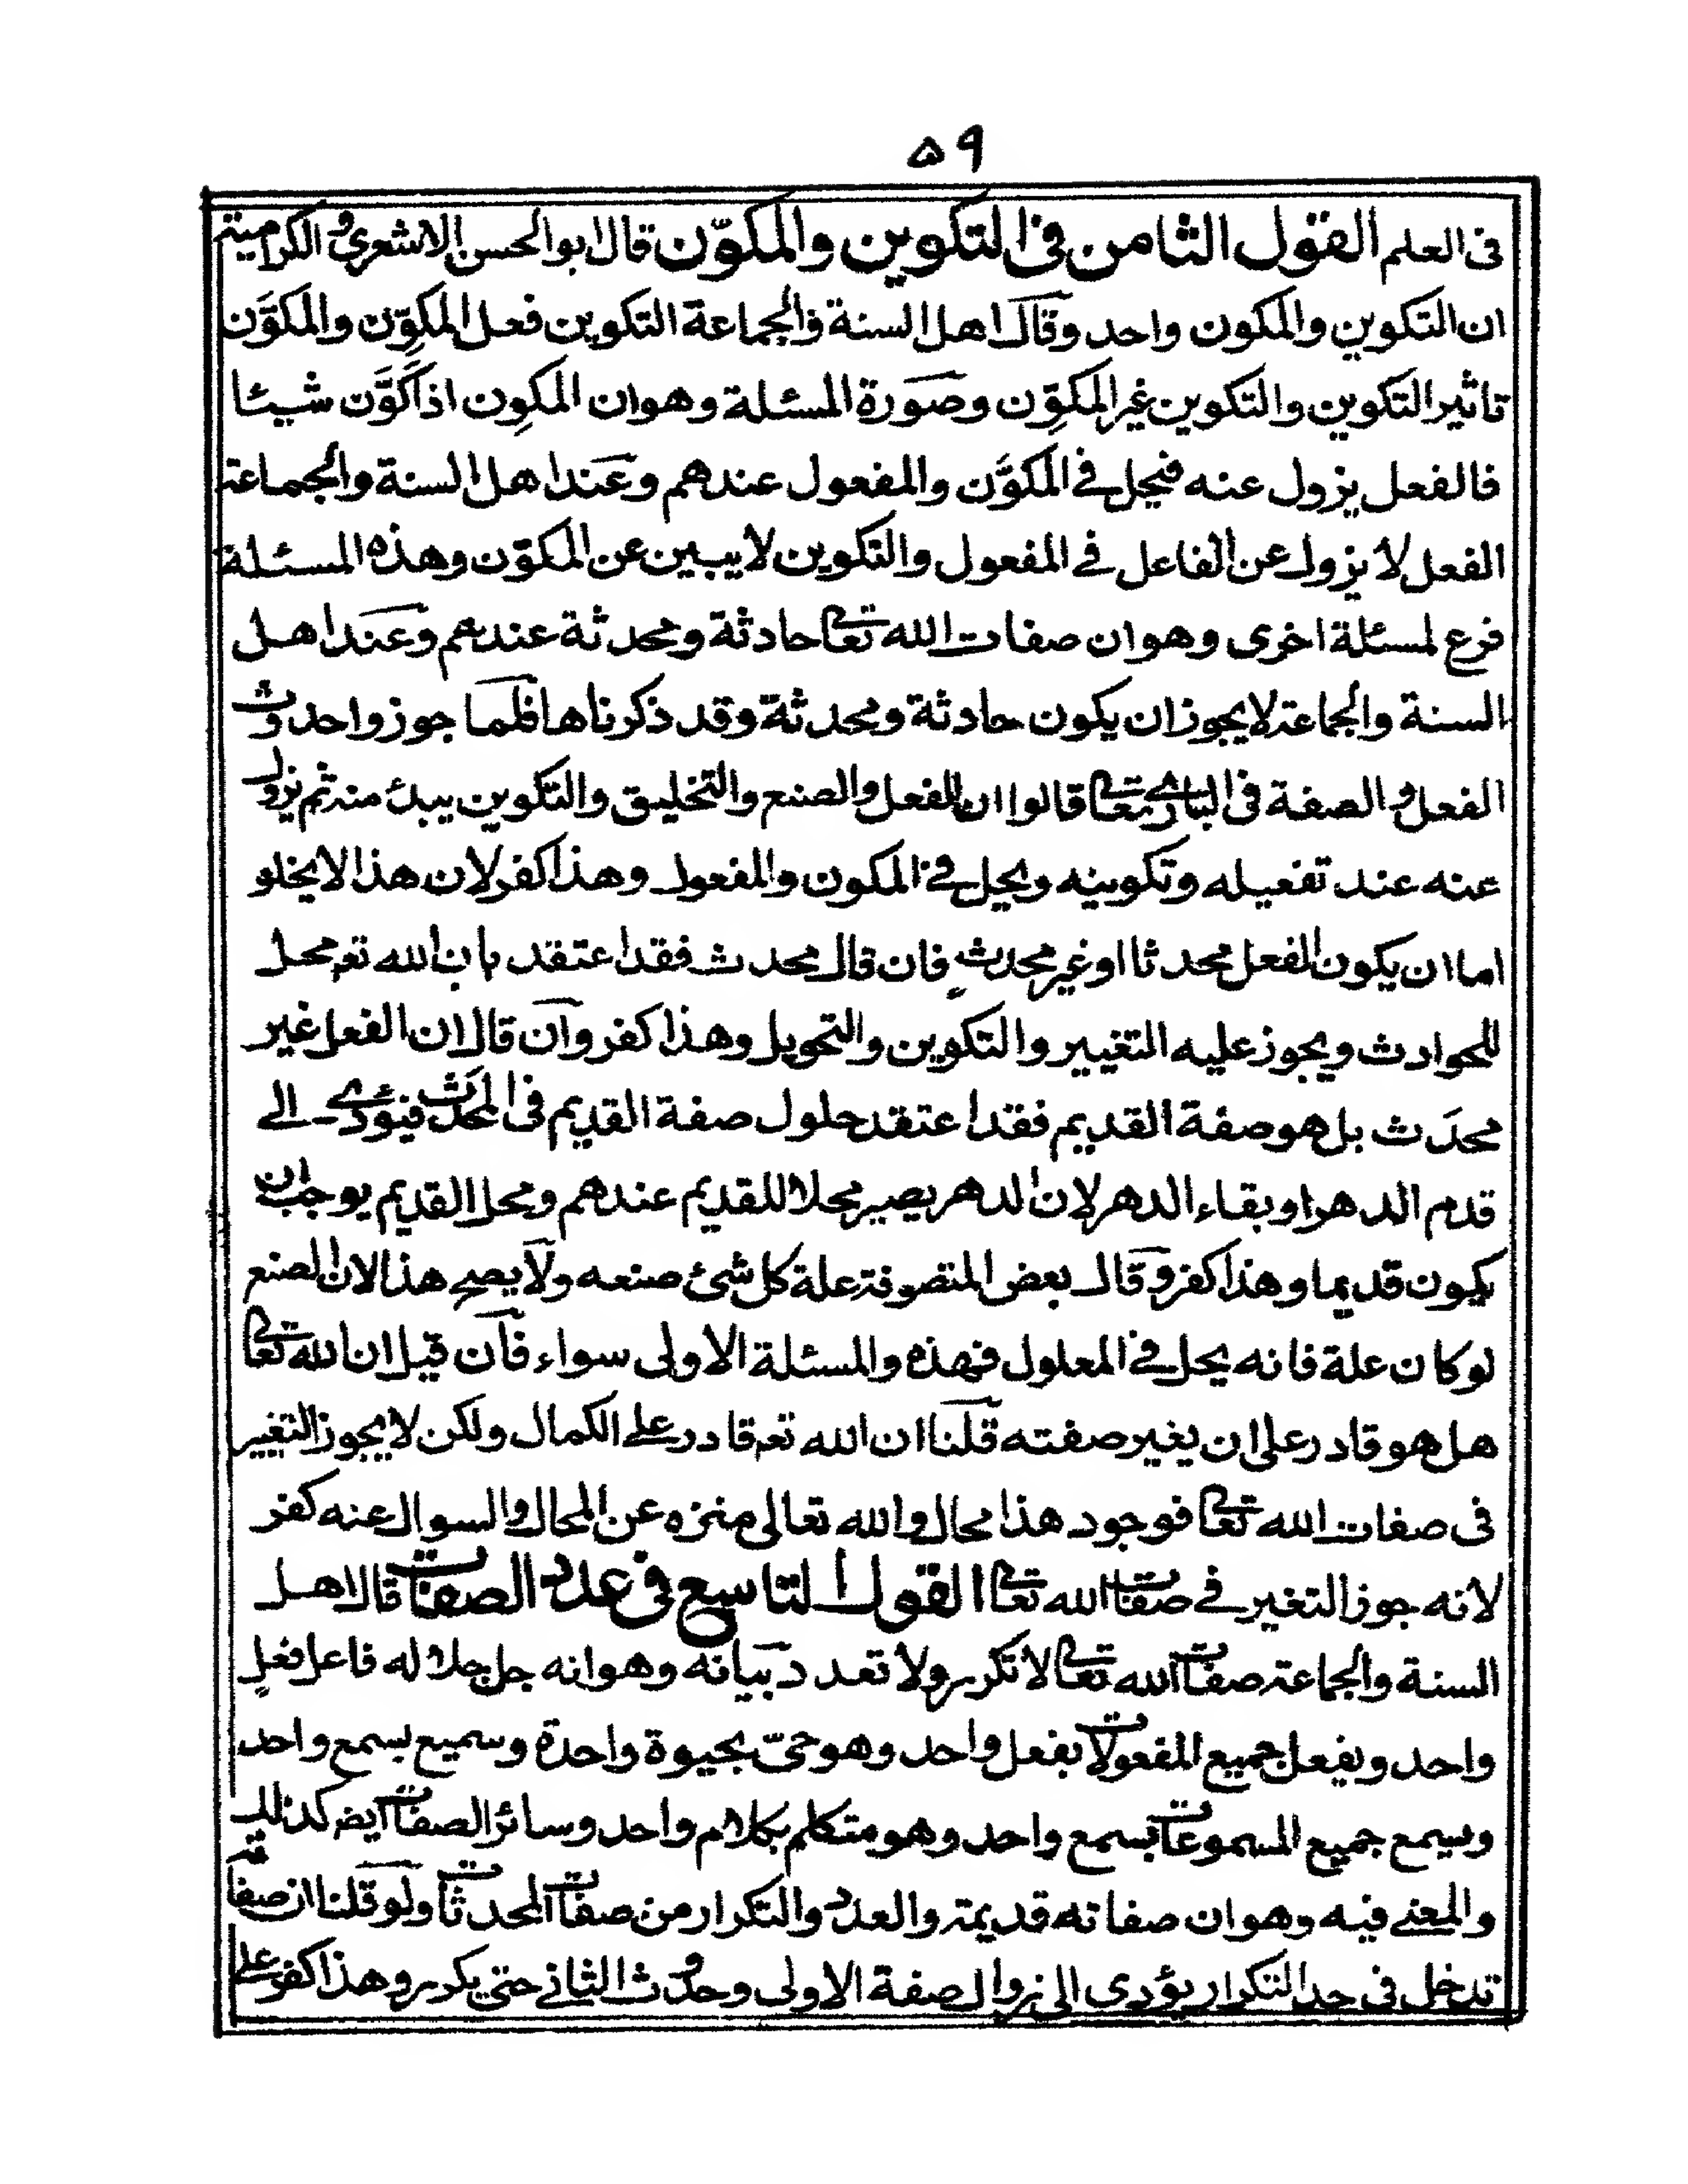 ٥٩
فى العلم القول الثامن فى التكوين والمكوّن قال ابو الحسن الاشعرى والكرامية
ان التكوين والمكون واحد وقال اهل السنة والجماعة التكوين فعل المكوِّن والمكوَّن
تاثير التكوين والتكوين غير المكوّن وصورة المسئلة وهو ان المكوِن اذا كوَّن شيئا
فالفعل يزول عنه فيحل فى المكوَّن والمفعول عندهم وعند اهل السنة والجماعة
الفعل لا يزول عن الفاعل فى المفعول والتكوين لا يبين عن المكوّن وهذه المسئلة
فرع لمسئلة اخرى وهو ان صفات الله تعالى حادثة ومحدثة عندهم وعند اهل
السنة والجماعة لا يجوز ان يكون حادثة ومحدثة وقد ذكرناها فلما جوز واحدوث
الفعل والصفة فى البارى تعالى قالوا ان الفعل والصنع والتخليق والتكوين يبدئ منه ثم يزول
عنه عند تفعيله وتكوينه ويحل فى المكون والمفعول وهذا كفر لان هذا لا يخلو
اما ان يكون الفعل محدثا او غير محدثٍ فان قال محدث فقد اعتقد بان الله تعہ محل
للحوادث ويجوز عليه التغيير والتكوين والتحويل وهذا كفر وان قال ان الفعل غير
محدَث بل هو صفة القديم فقد اعتقد حلول صفة القديم فى المحدَث فيؤدى الى
قدم الدهر او بقاء الدهر لان الدهر يصير محلا للقديم عندهم ومحل القديم يوجب ان
يكون قديما وهذا كفر وقال بعض المتصوفة علة كل شئ صنعه ولا يصح هذا لان الصنع
لو كان علة فانه يحل فى المعلول فهذه والمسئلة الاولى سواء فان قيل ان الله تعالى
هل هو قادر على ان يغير صفته قلنا ان الله تعہ قادر على الكمال ولكن لا يجوز التغيير
فى صفات الله تعالى فوجود هذا محال والله تعالى منزه عن المحال والسوال عنه كفر
لانه جوز التغير فى صفات الله تعالى القول التاسع فى عدد الصفات قال اهل
السنة والجماعة صفات الله تعالى لا تكرر ولا تعدد بيانه وهو انه جل جلاله فاعل فعلٍ
واحد ويفعل جميع المفعولات بفعل واحد وهو حىّ بحيوة واحدة وسميع بسمع واحد
ويسمع جميع المسموعات بسمع واحد وهو متكلم بكلام واحد وسائر الصفات ايضہ كذلك
والمعنى فيه وهو ان صفاته قديمة والعدد والتكرار من صفات المحدثات ولو قلنا ان صفاته
تدخل فى حد التكرار يؤدى الى زوال الصفة الاولى وحدوث الثانى حتى يكرر وهذا كفر على